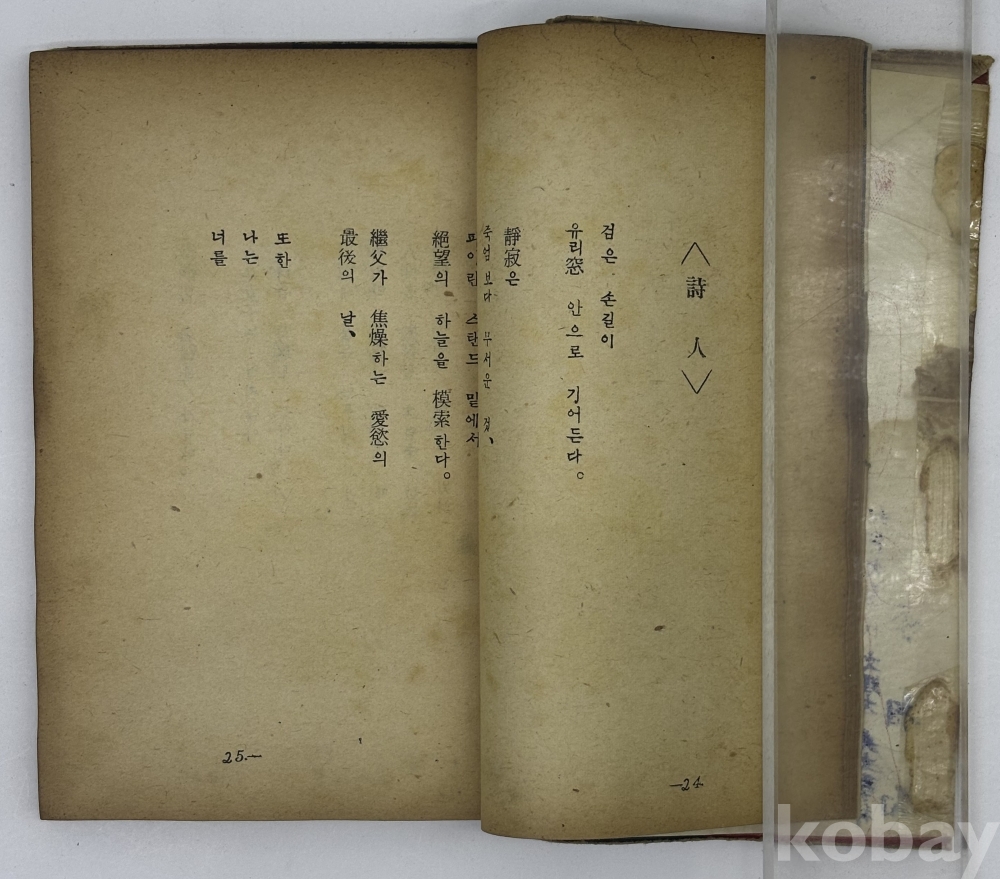 〈詩人〉
검은 손길이
유리窓 안으로 기어든다。
靜寂은
죽엄 보다 무서운
스탄드 밑에서
絕望의 하늘을 模索한다。
繼父가 焦燥하는 愛慾의
最後의 날、
또한
나는
너를
—24
25.—
kobay